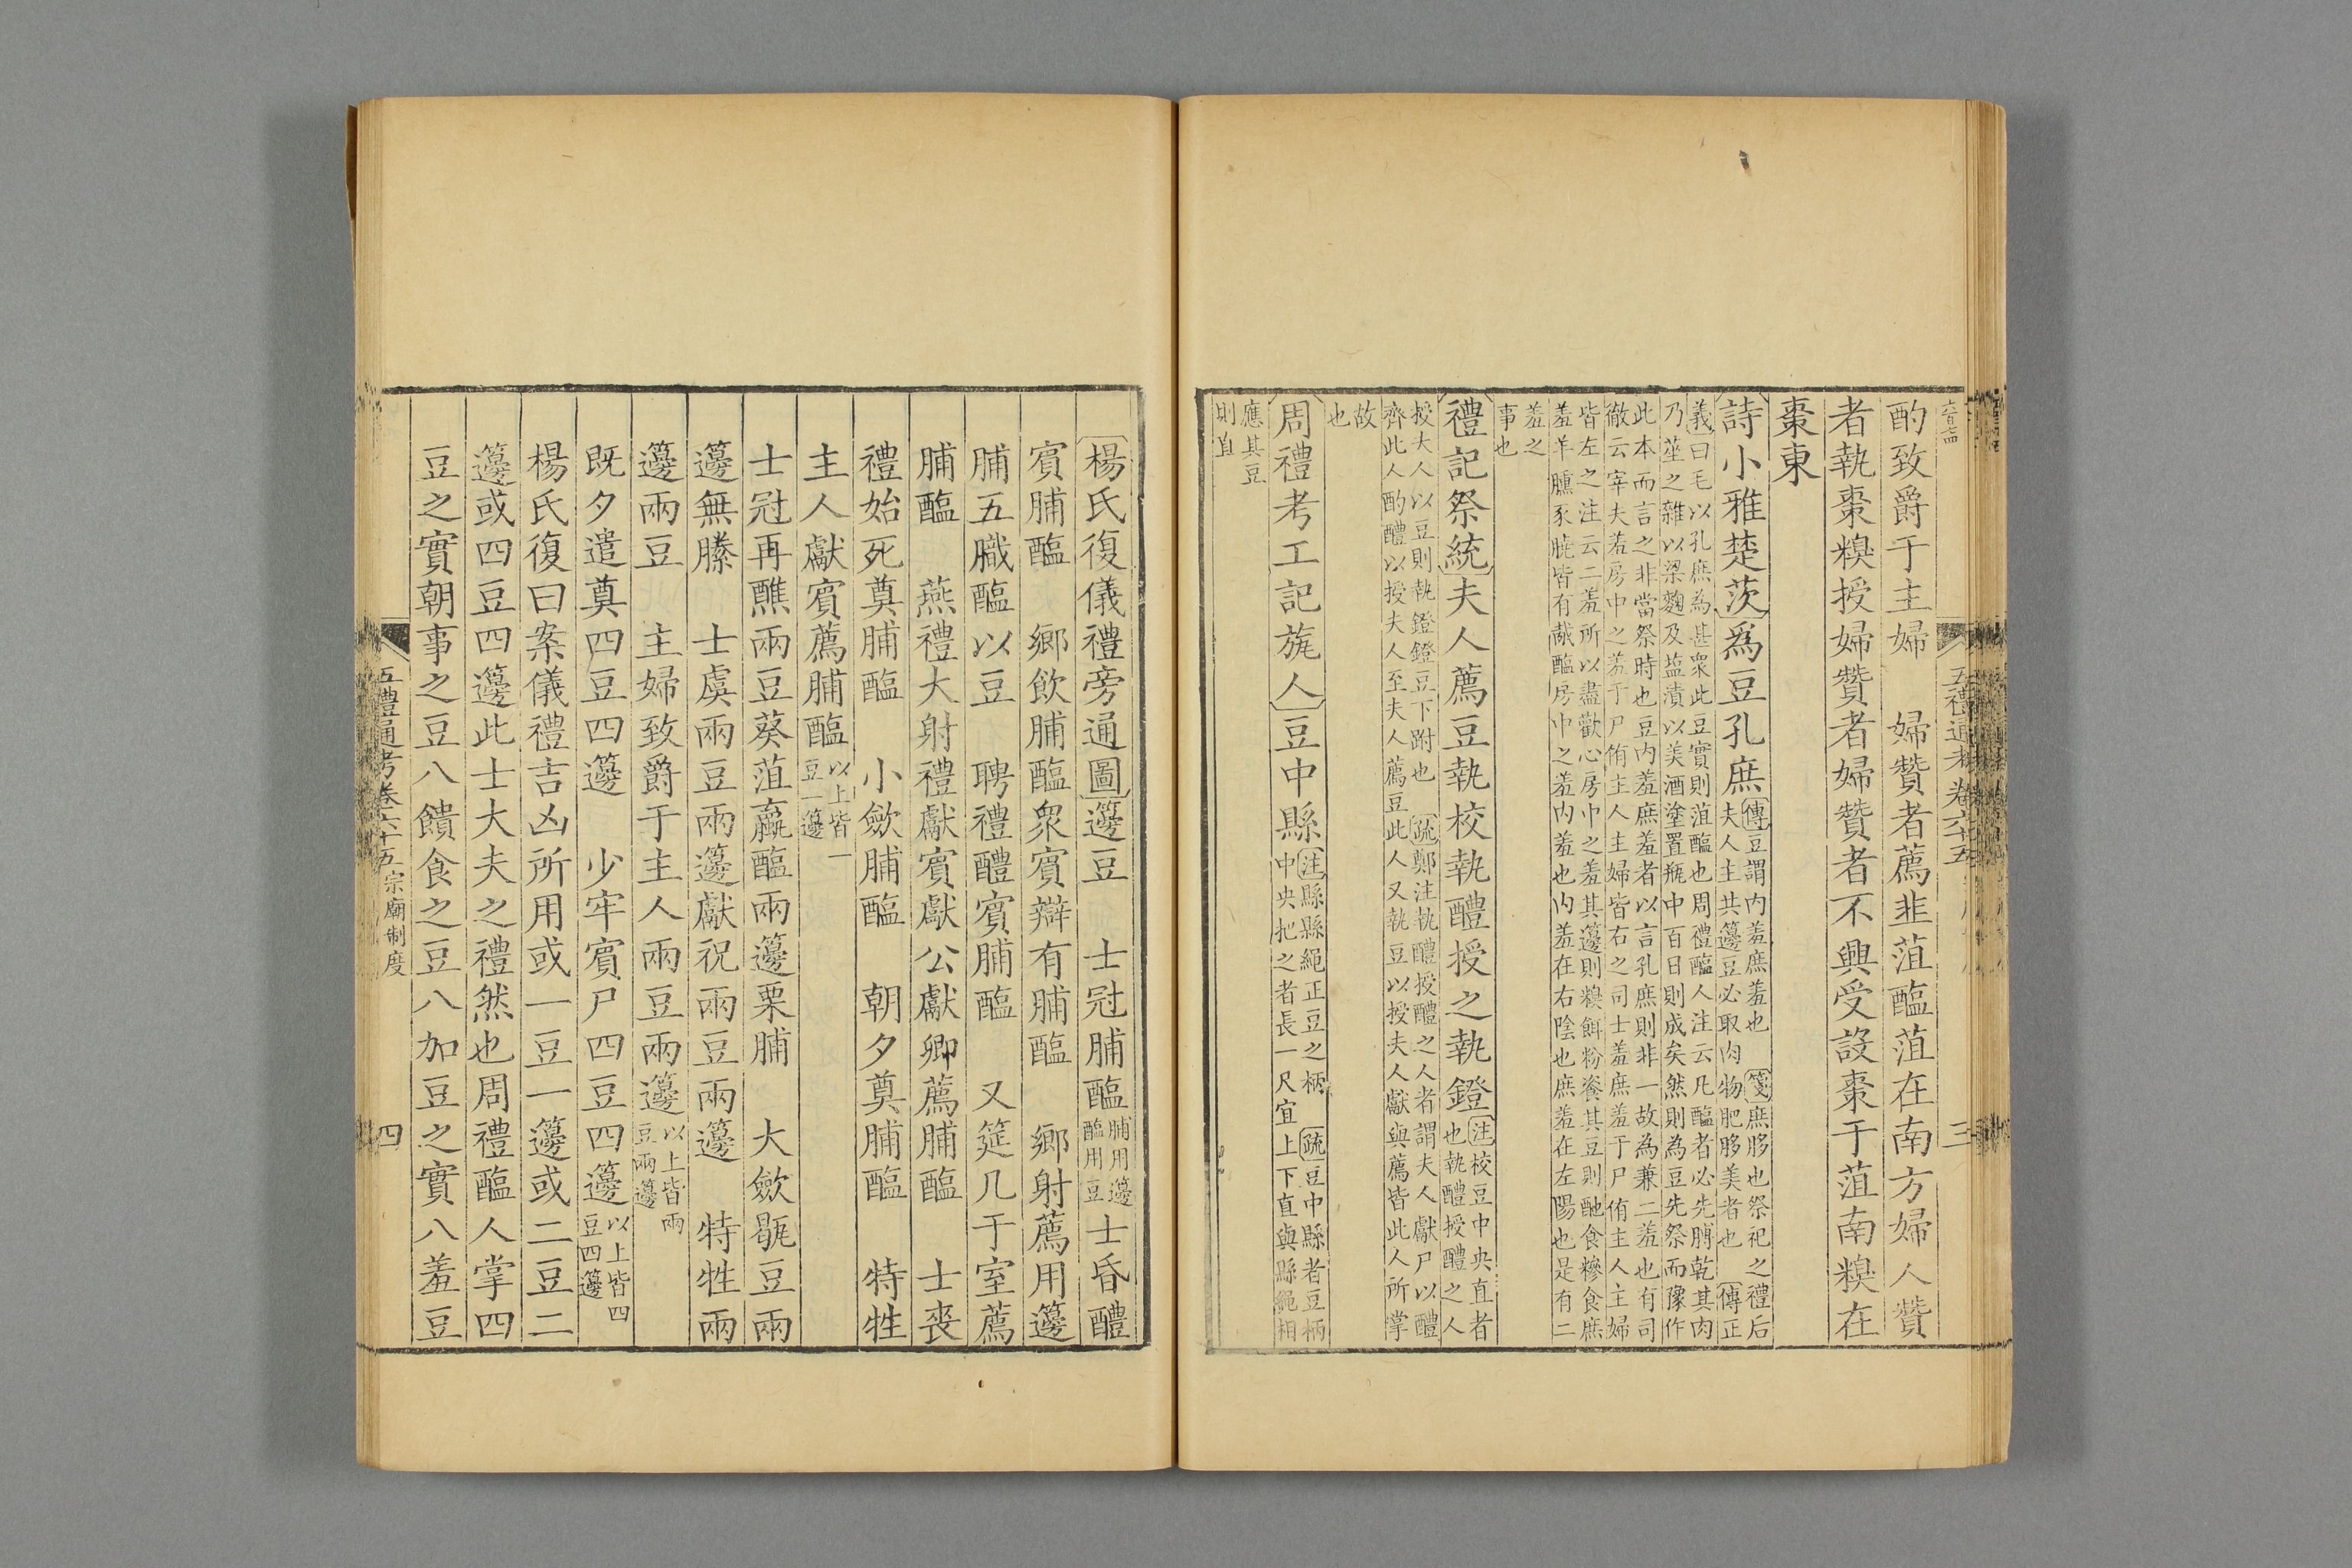 酌致爵于主婦　婦贊者薦韭菹醢菹在南方婦人贊
者執棗糗授婦贊者婦贊者不興受設棗于菹南糗在
棗東
詩小雅楚茨爲豆孔庶傳豆謂内羞庶羞也　箋庶㢋也祭祀之禮后
夫人主共籩豆必取肉物肥㢋美者也　傳正
義曰毛以孔庶為甚衆此豆實則菹醢也周禮醢人注云凡醢者必先膊乾其肉
乃莝之雜以梁麴及塩漬以美酒塗置瓶中百日則成矣然則為豆先祭而豫作
此本而言之非當祭時也豆内羞庶羞者以言孔庶則非一故為兼二羞也有司
徹云宰夫羞房中之羞于尸侑主人主婦皆右之司士羞庶羞于尸侑主人主婦
皆左之注云二羞所以盡歡心房中之羞其籩則糗餌粉餈其豆則酏食糝食庶
羞羊臐豕膮皆有胾醢房中之羞内羞也内羞在右陰也庶羞在左陽也是有二
羞之
事也
禮記祭統夫人薦豆執校執醴授之執鐙注校豆中央直者
也執醴授醴之人
授大人以豆則執鐙鐙豆下跗也　疏鄭注執醴授醴之人者謂夫人獻尸以醴
齊此人酌醴以授夫人至夫人薦豆此人又執豆以授夫人獻與薦皆此人所掌
故
也
周禮考工記旊人豆中縣注縣縣繩正豆之柄　疏豆中縣者豆柄
中央把之者長一尺宜上下直與縣繩相
應其豆
則直
五禮通考卷六十五
三
楊氏復儀禮旁通圖籩豆　士冠脯醢脯用籩
醢用豆士昏醴
賓脯醢　鄉飲脯醢衆賓辯有脯醢　鄉射薦用籩
脯五膱醢以豆　聘禮醴賓脯醢　又筵几于室薦
脯醢　燕禮大射禮獻賓獻公獻卿薦脯醢　士喪
禮始死奠脯醢　小斂脯醢　朝夕奠脯醢　特牲
主人獻賓薦脯醢以上皆一
豆一籩
士冠再醮兩豆葵菹蠃醢兩籩栗脯　大斂毼豆兩
籩無縢　士虞兩豆兩籩獻祝兩豆兩籩　特牲兩
籩兩豆　主婦致爵于主人兩豆兩籩以上皆兩
豆兩籩
既夕遣奠四豆四籩　少牢賓尸四豆四籩以上皆四
豆四籩
楊氏復曰案儀禮吉凶所用或一豆一籩或二豆二
籩或四豆四籩此士大夫之禮然也周禮醢人掌四
豆之實朝事之豆八饋食之豆八加豆之實八羞豆
五禮通考卷六十五宗廟制度
四